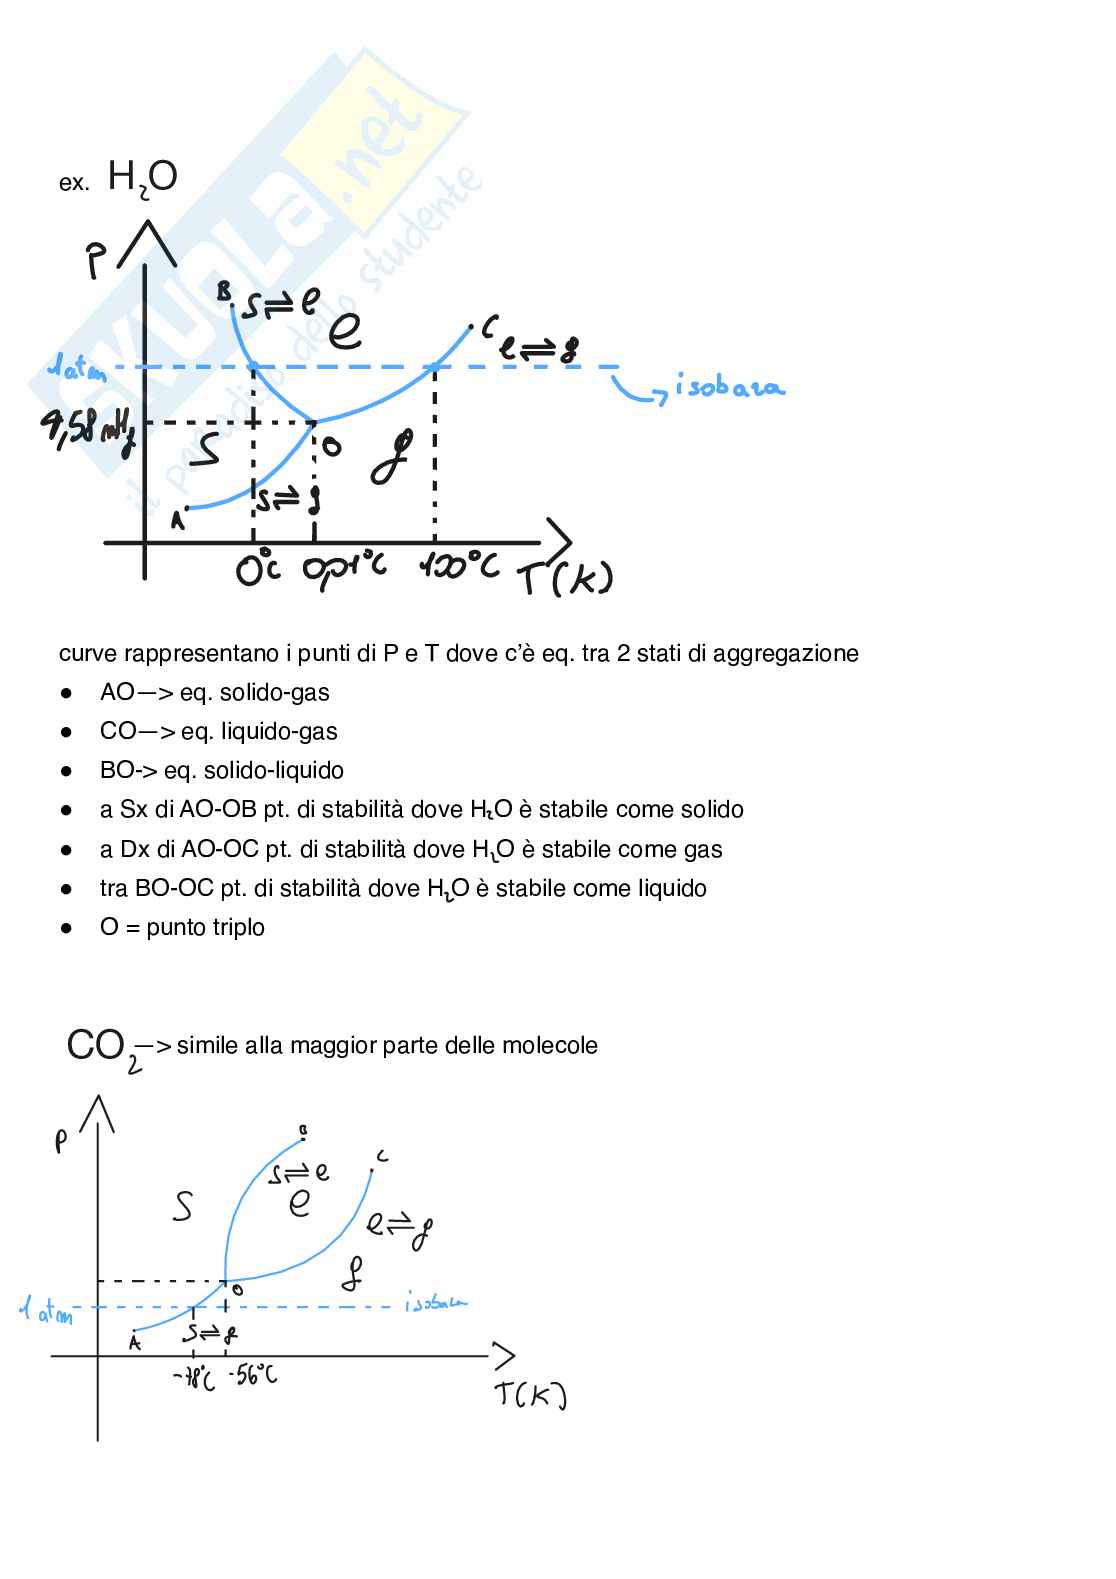 SKUOLA.net
il paradiso dello studente
ex. H₂O
P
B S⇌l
l
C l⇌g
1 atm
isobara
4,58 mmHg
S
O
g
S⇌g
A
0°C 0,01°C 100°C T(K)
curve rappresentano i punti di P e T dove c’è eq. tra 2 stati di aggregazione
● AO—> eq. solido-gas
● CO—> eq. liquido-gas
● BO-> eq. solido-liquido
● a Sx di AO-OB pt. di stabilità dove H₂O è stabile come solido
● a Dx di AO-OC pt. di stabilità dove H₂O è stabile come gas
● tra BO-OC pt. di stabilità dove H₂O è stabile come liquido
● O = punto triplo
CO₂—> simile alla maggior parte delle molecole
P
B
C
S⇌l
S
l
l⇌g
g
O
1 atm
isobara
A
S⇌g
-78°C -56°C
T(K)